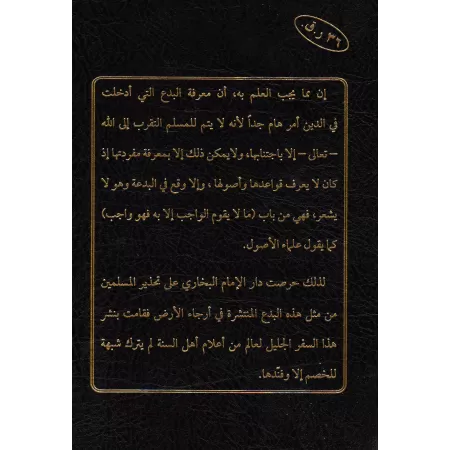 ٣٦ ر.ق.
إن مما يجب العلم به، أن معرفة البدع التي أدخلت
في الدين أمر هام جداً لأنه لا يتم للمسلم التقرب إلى الله
– تعالى – إلا باجتنابها، ولايمكن ذلك إلا بمعرفة مفردتها إذ
كان لا يعرف قواعدها وأصولها، وإلا وقع في البدعة وهو لا
يشعر، فهي من باب (ما لا يقوم الواجب إلا به فهو واجب)
كما يقول علماء الأصول.
لذلك حرصت دار الإمام البخاري على تحذير المسلمين
من مثل هذه البدع المنتشرة في أرجاء الأرض فقامت بنشر
هذا السفر الجليل لعالم من أعلام أهل السنة لم يترك شبهة
للخصم إلا وفندها.